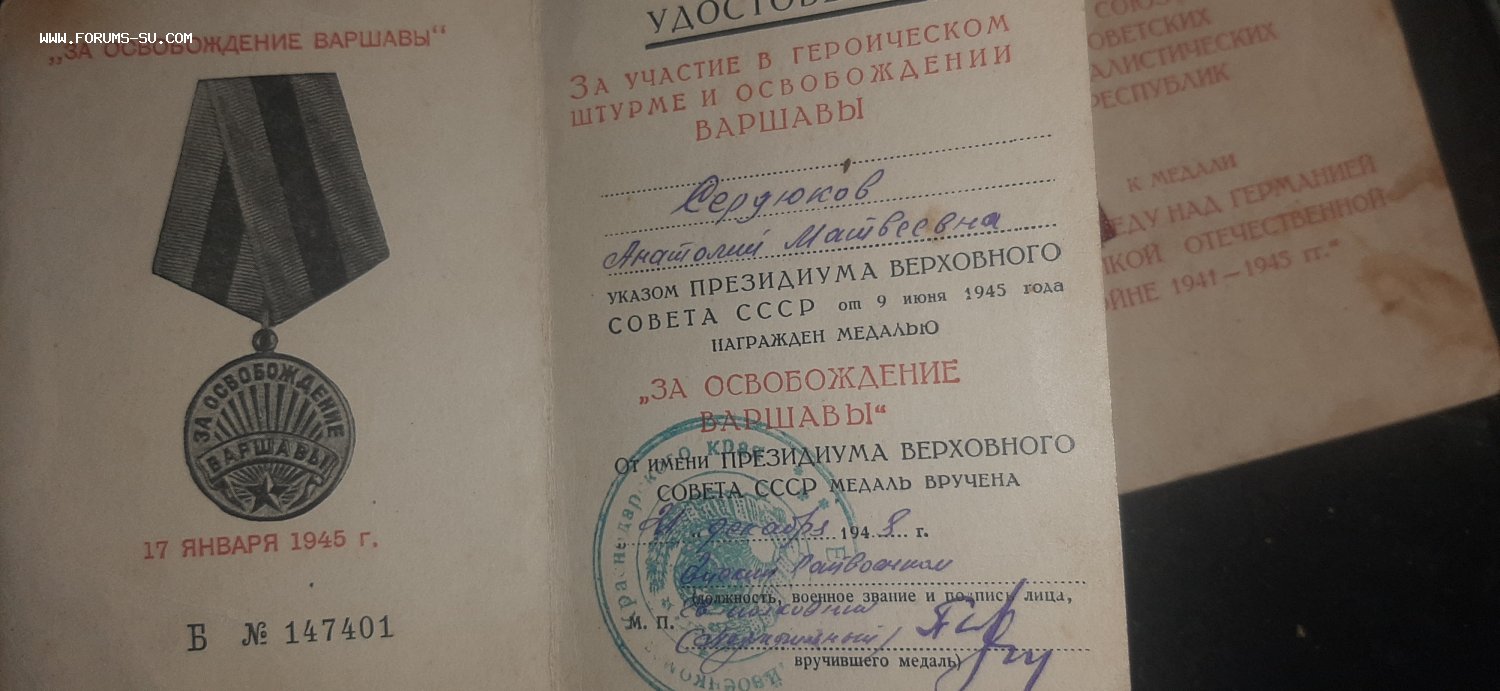 www.forums-su.com
„ЗА ОСВОБОЖДЕНИЕ ВАРШАВЫ“
ЗА ОСВОБОЖДЕНИЕ
ВАРШАВЫ
17 ЯНВАРЯ 1945 г.
Б № 147401
УДОСТОВЕ
ЗА УЧАСТИЕ В ГЕРОИЧЕСКОМ
ШТУРМЕ И ОСВОБОЖДЕНИИ
ВАРШАВЫ
Сердюков
Анатолий Матвеевна
УКАЗОМ ПРЕЗИДИУМА ВЕРХОВНОГО
СОВЕТА СССР от 9 июня 1945 года
НАГРАЖДЕН МЕДАЛЬЮ
„ЗА ОСВОБОЖДЕНИЕ
ВАРШАВЫ“
От имени ПРЕЗИДИУМА ВЕРХОВНОГО
СОВЕТА СССР МЕДАЛЬ ВРУЧЕНА
декабря 1948 г.
Райвоенком
(должность, военное звание и подпись лица,
М. П.
вручившего медаль)
края
СОЮЗ
ОВЕТСКИХ
АЛИСТИЧЕСКИХ
РЕСПУБЛИК
К МЕДАЛИ
ЕДУ НАД ГЕРМАНИЕЙ
ИКОЙ ОТЕЧЕСТВЕННОЙ
ОЙНЕ 1941—1945 гг.“